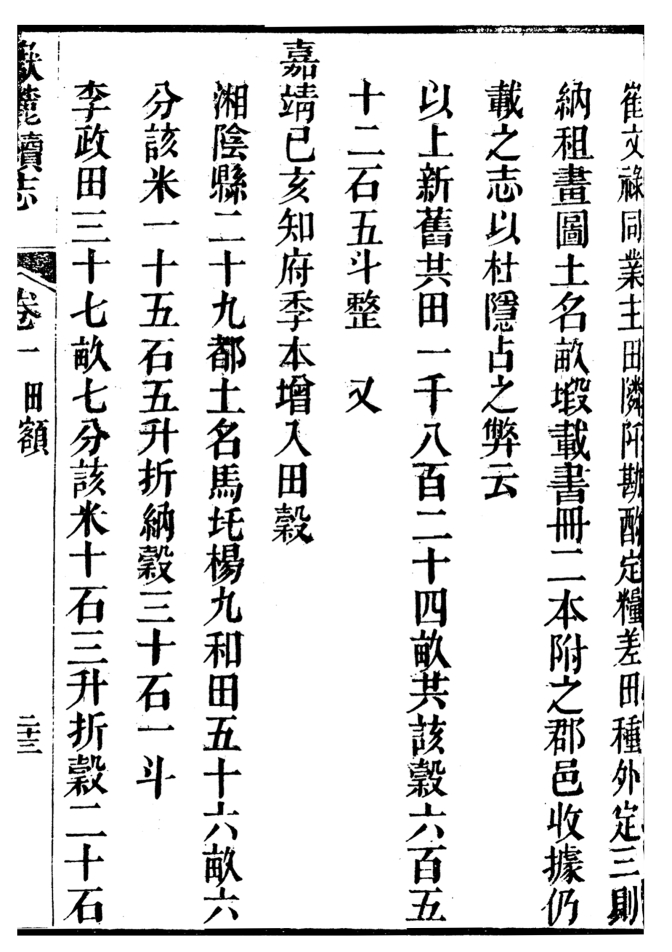 崔文祿同業主田隣阡勘酌定糧差田種外定三則
納租畫圖土名畝塅載書冊二本附之郡邑收據仍
載之志以杜隱占之弊云
以上新舊共田一千八百二十四畝共該穀六百五
十二石五斗整　又
嘉靖已亥知府季本增入田穀
湘陰縣二十九都土名馬圫楊九和田五十六畝六
分該米一十五石五升折納穀三十石一斗
李政田三十七畝七分該米十石三升折穀二十石
嶽麓續志　卷一　田額　二十三